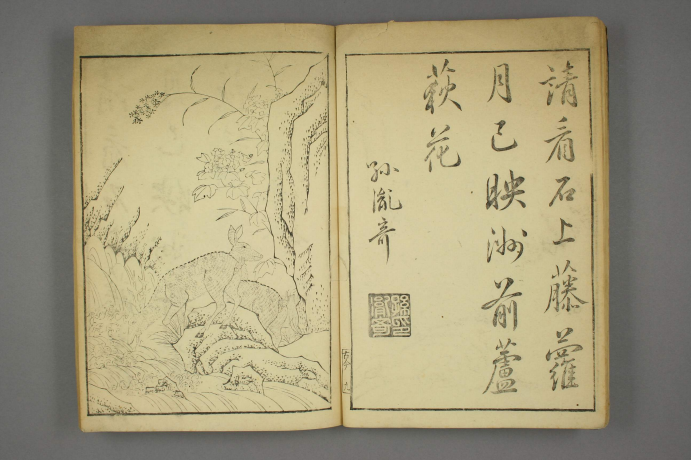 請看石上藤蘿
月已映洲前蘆
萩花
孫胤奇